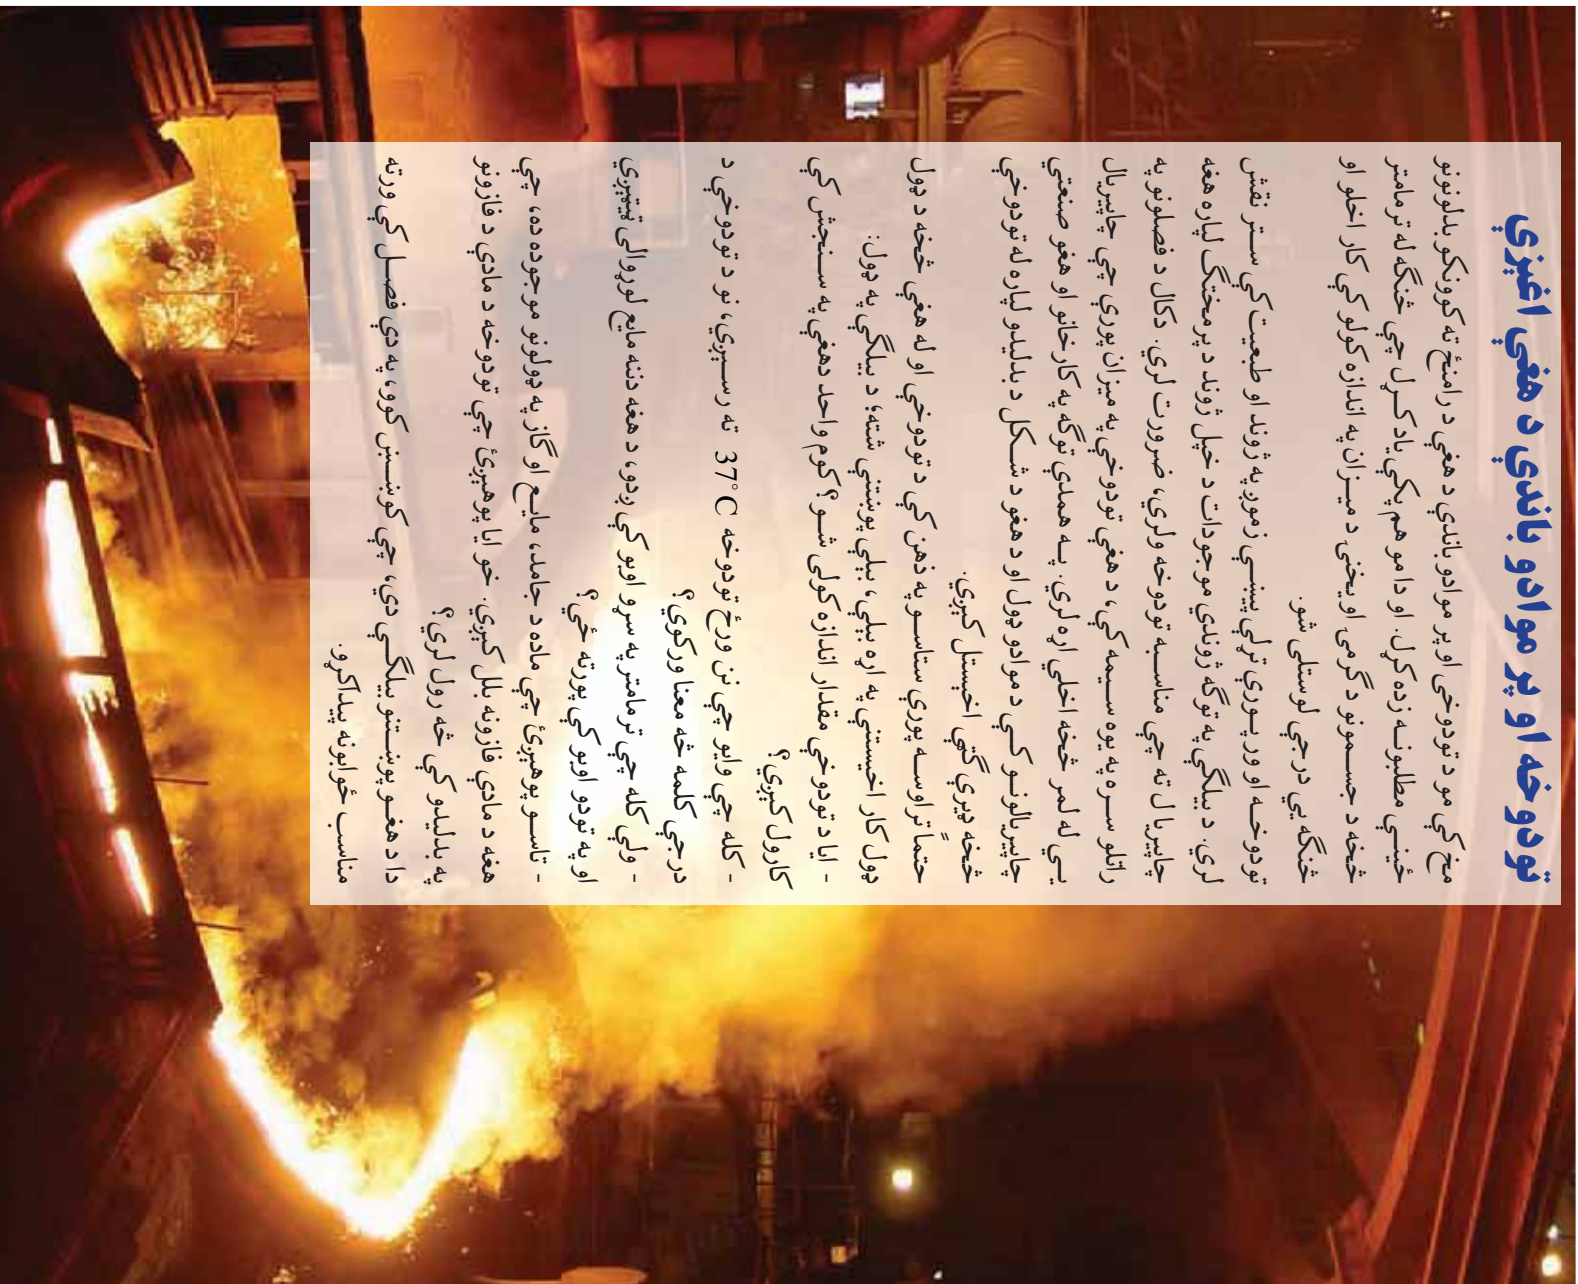 تودوخه او پر موادو باندې د هغې اغېزې
مخ کې مو د تودوخې او پر موادو باندې د هغې د رامنځ ته کوونکو بدلونونو
ځينې مطلبونه زده کړل. او دا مو هم پکې ياد کړل چې څنګه له ترمامتر
څخه د جسمونو د ګرمۍ او يخنۍ د ميزان په اندازه کولو کې کار اخلو او
څنګه يې درجې لوستلی شو.
تودوخه او ورپورې تړلې پېښې زموږ په ژوند او طبيعت کې ستر نقش
لري. د بيلګې په توګه ژوندي موجودات د خپل ژوند د پرمختګ لپاره هغه
چاپيريال ته چې مناسبه تودوخه ولري، ضرورت لري. دکال د فصلونو په
راتلو سره په يوه سيمه کې، د هغې تودوخې په ميزان پورې چې چاپيريال
يې له لمر څخه اخلي اړه لري. په همدې توګه په کارخانو او هغو صنعتي
چاپيريالونو کې د موادو ډول او د هغو د شکل د بدليدو لپاره له تودوخې
څخه ډېرې ګټې اخيستل کيږي.
حتماً تراوسه پورې ستاسو په ذهن کې د تودوخې او له هغې څخه د ډول
ډول کار اخيستنې په اړه بيلې، بيلې پوښتنې شته؛ د بيلګې په ډول:
- ايا د تودوخې مقدار اندازه کولی شو؟ کوم واحد دهغې په سنجش کې
کارول کيږي؟
- کله چې وايو چې نن ورځ تودوخه 37°C ته رسيږي، نو د تودوخې د
درجې کلمه څه معنا ورکوي؟
- ولې کله چې ترمامتر په سړو اوبو کې ږدو، د هغه دننه مايع لوړوالی ټيټيږي
او په تودو اوبو کې پورته ځي؟
- تاسو پوهيږئ چې ماده د جامد، مايع او ګاز په ډولونو موجوده ده، چې
هغه د مادې فازونه بلل کيږي. خو ايا پوهيږئ چې تودوخه د مادې د فازونو
په بدليدو کې څه رول لري؟
دا د هغو پوښتنو بيلګې دي، چې کوښښ کوو، په دې فصل کې ورته
مناسب ځوابونه پيداکړو.